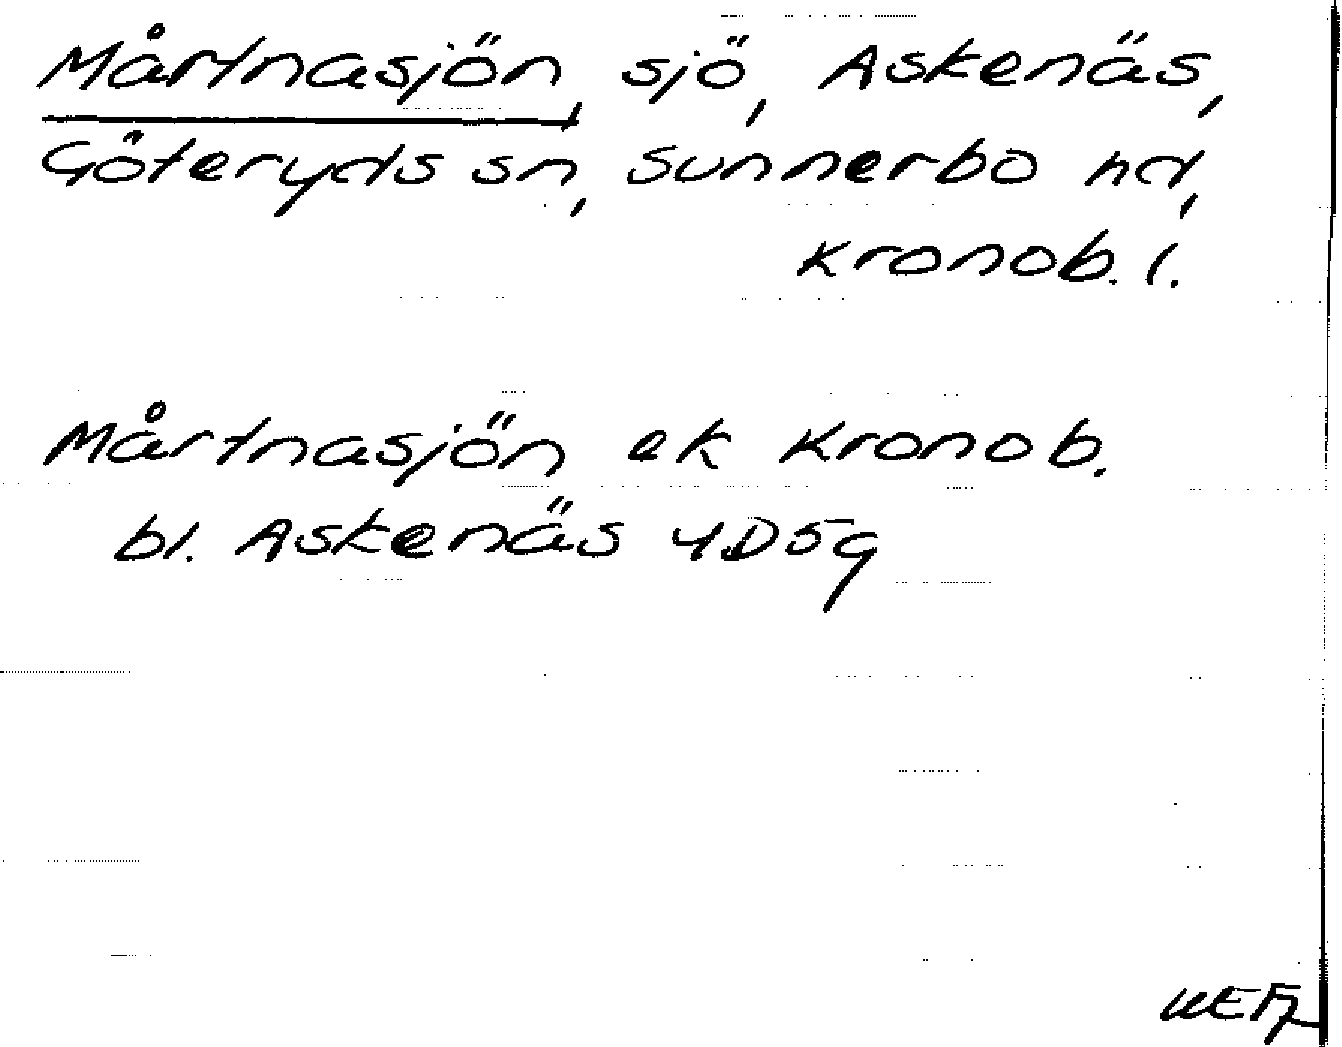 Mårtnasjön, sjö, Askenäs,
Göteryds sn, Sunnerbo hd,
Kronob. l.
Mårtnasjön ek Kronob.
bl. Askenäs 4D5g